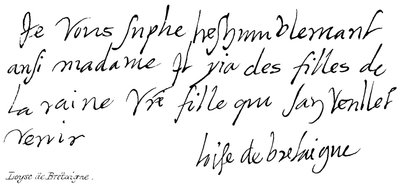 Je vous suplie treshumblemant
ansi madame Il yia des filles de
La raine Vre fille qui san veullet
venir
loise de bretaigne
Loyse de Bretaigne.